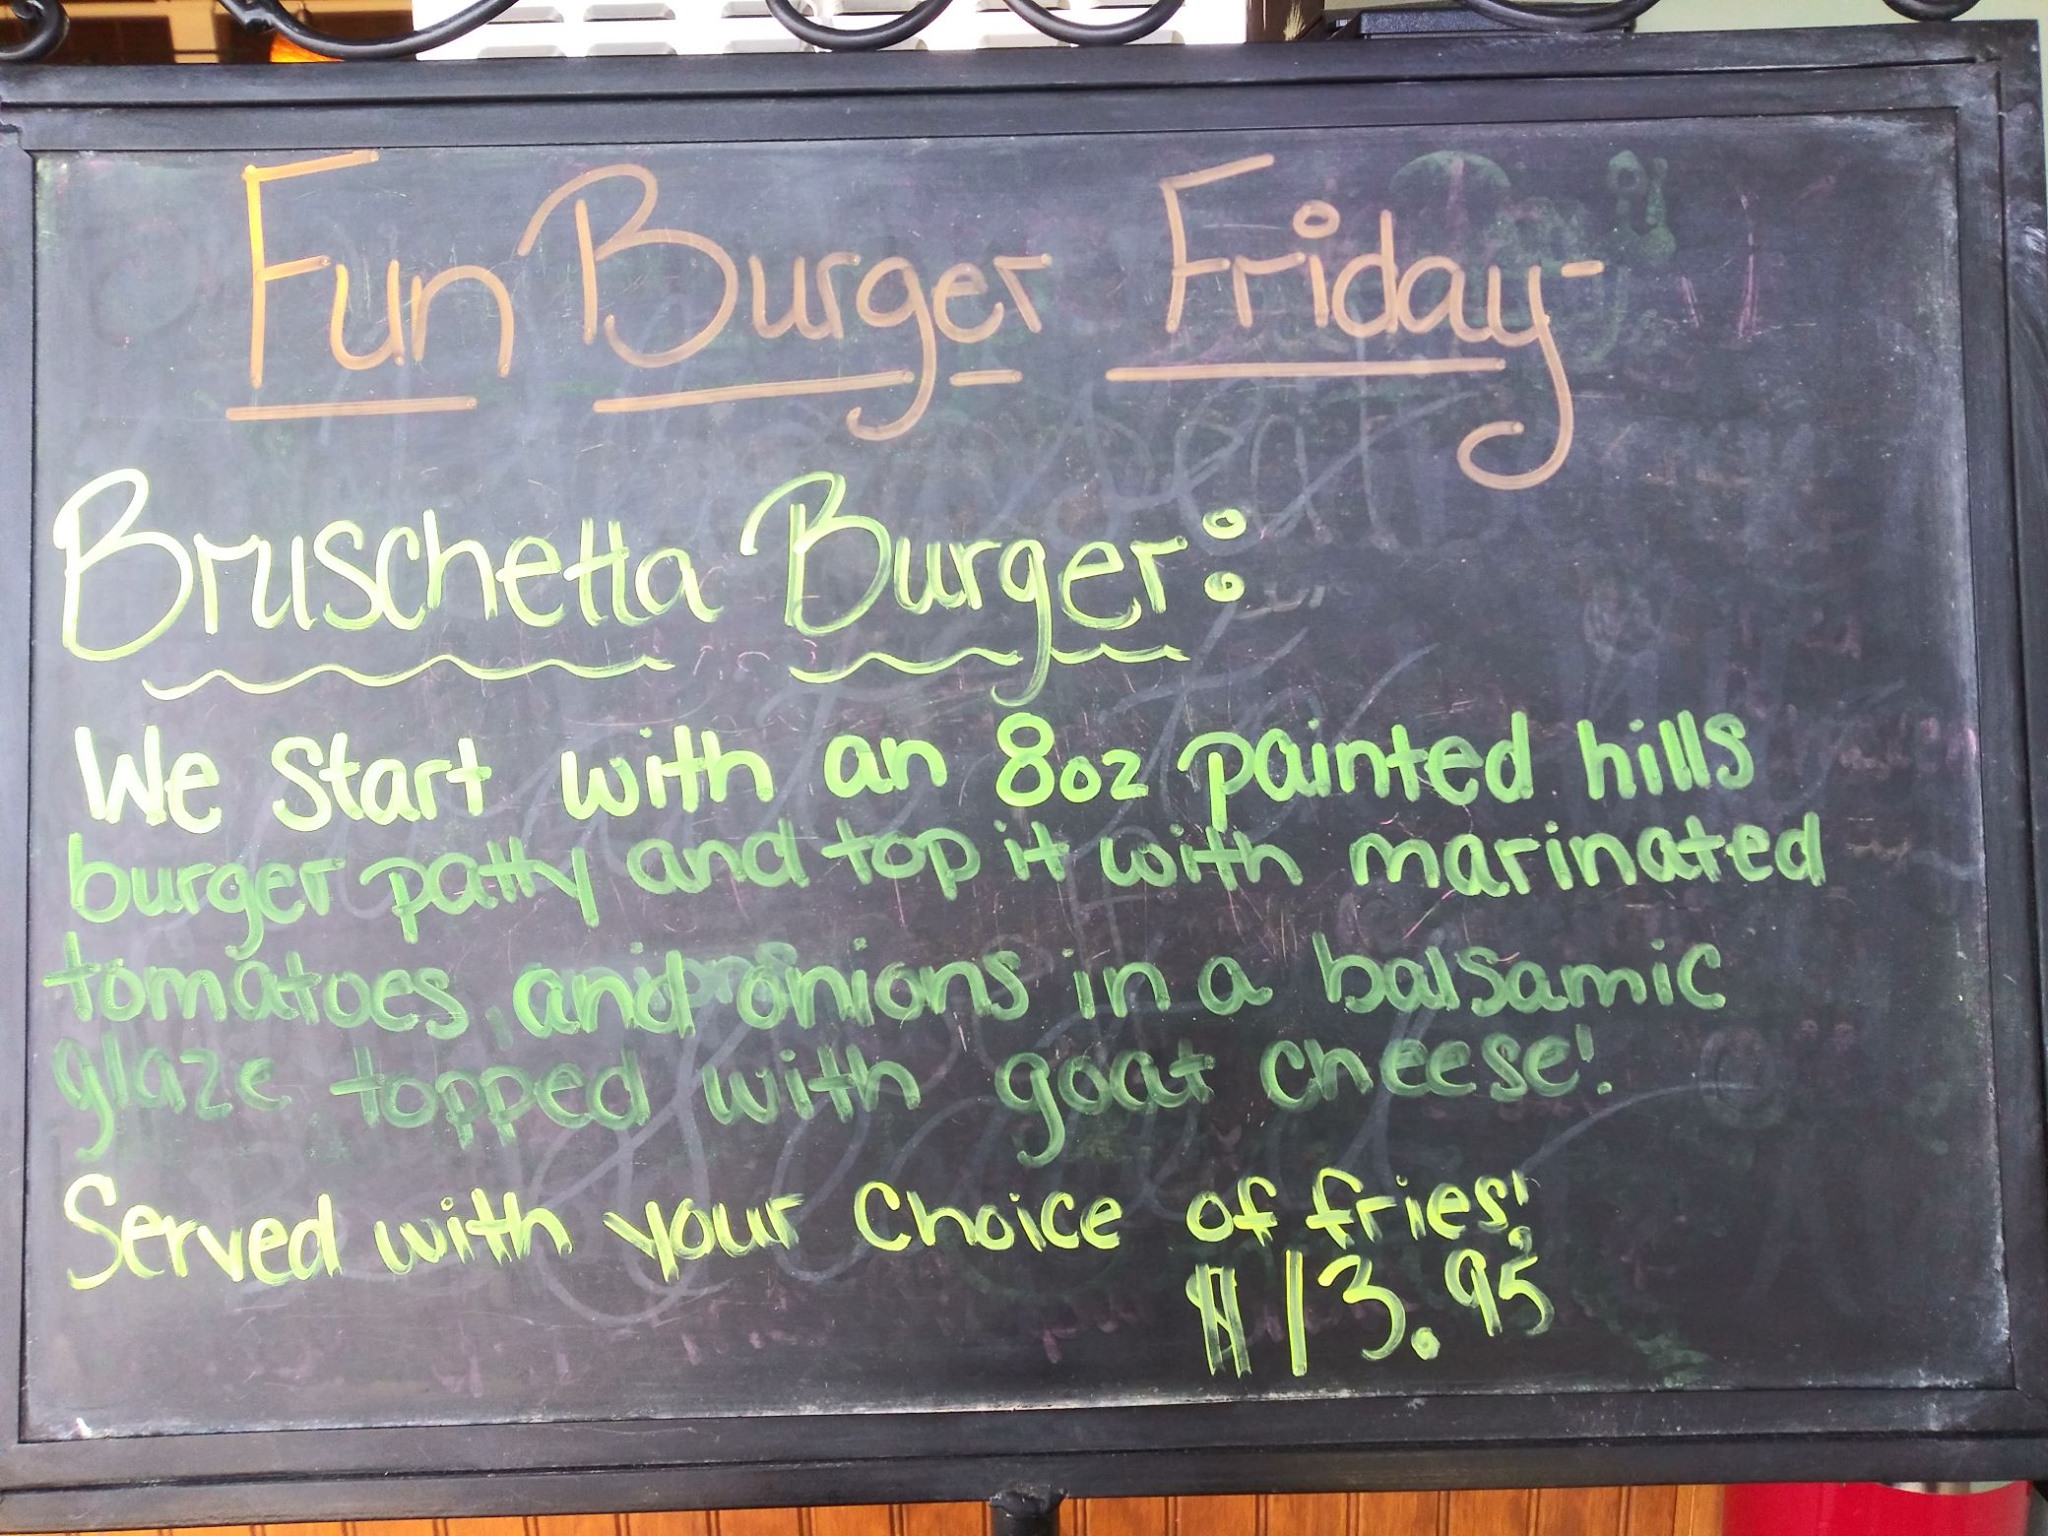 Fun Burger Friday-
Bruschetta Burger:
We start with an 8oz painted hills
burger patty and top it with marinated
tomatoes, and onions in a balsamic
glaze topped with goat cheese!
Served with your choice of fries!
$13.95